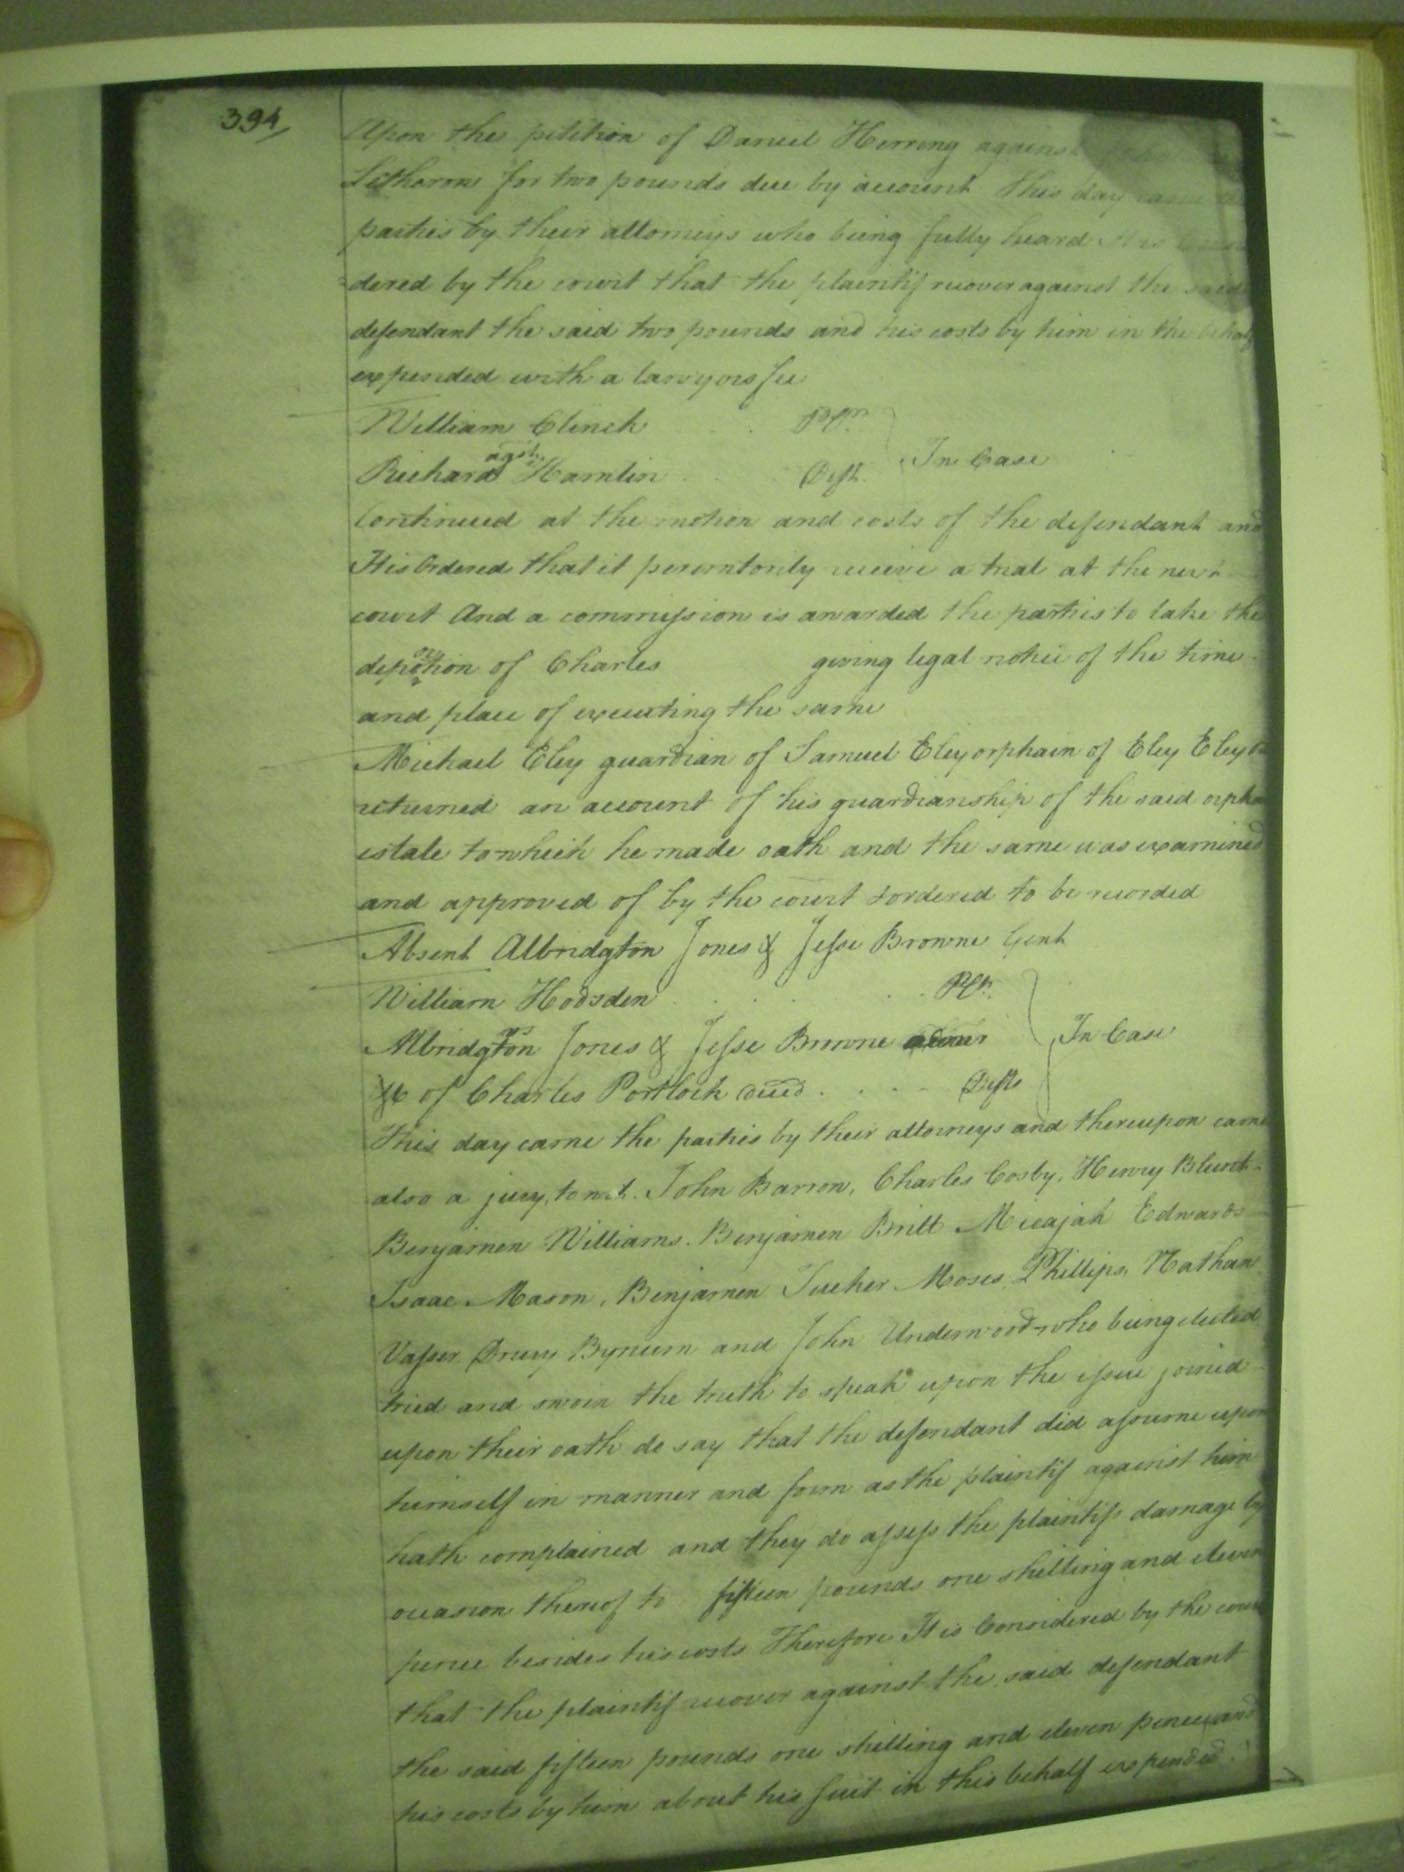 394
Upon the petition of Daniel Herring against John
Lethorone for two pounds due by account This day came the
parties by their attorneys who being fully heard It is Consi
=dered by the court that the plaintif recover against the said
defendant the said two pounds and his costs by him in the behalf
expended with a lawyers fee
William Clinch . . Pltn.
agst. In Case
Richard Hamlin . . Deft.
Continued at the motion and costs of the defendant and
It is Ordered that it peremtorily receive a trial at the next
court And a commission is awarded the parties to take the
depotion of Charles giving legal notice of the time
and place of executing the same
Michael Eley guardian of Samuel Eley orphain of Eley Eley
returned an account of his guardianship of the said orphan
estate to which he made oath and the same was examined
and approved of by the court & ordered to be recorded
Absent Albridgton Jones & Jesse Browne Gent
William Hodsden . . . . Pltn.
vs In Case
Albridgton Jones & Jesse Browne admr
&c of Charles Portlock decd . . . Defts
This day came the parties by their attorneys and thereupon came
also a jury, towit. John Barron, Charles Cosby, Henry Blunt
Benjamen Williams. Benjamen Britt Micajah Edwards
Isaac Mason, Benjamen Tucker Moses Phillips, Nathan
Vasser Drury Bynum and John Underwood who being elected
tried and sworn the truth to speak upon the issue joined
upon their oath do say that the defendant did assume upon
himself in manner and form as the plaintif against him
hath complained and they do assess the plaintifs damage by
occasion thereof to fifteen pounds one shilling and eleven
pence besides his costs Therefore It is Considered by the court
that the plaintif recover against the said defendant
the said fifteen pounds one shilling and eleven pence and
his costs by him about his suit in this behalf expended.